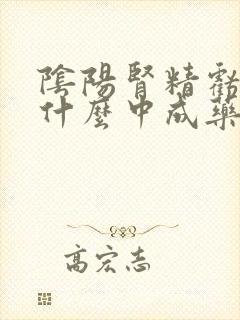 陰陽腎精虧
什麼中成藥
高宏志